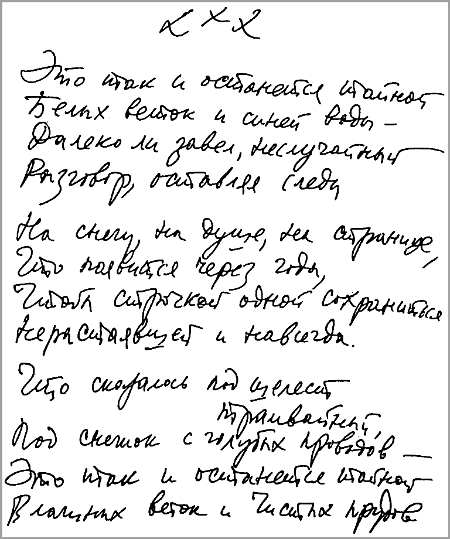 * * *
Это так и останется тайной
Белых веток и синей воды –
Далеко ли завел, неслучайный
Разговор, оставляя следы
На снегу, на душе, на странице,
Что появится через годы,
Чтоб строчкой одной сохраниться
Нерастаявшей и навсегда.
Что сказалось под шелест
трамвайный,
Под снежок с голубых проводов –
Это так и останется тайной
Влажных веток и Чистых прудов